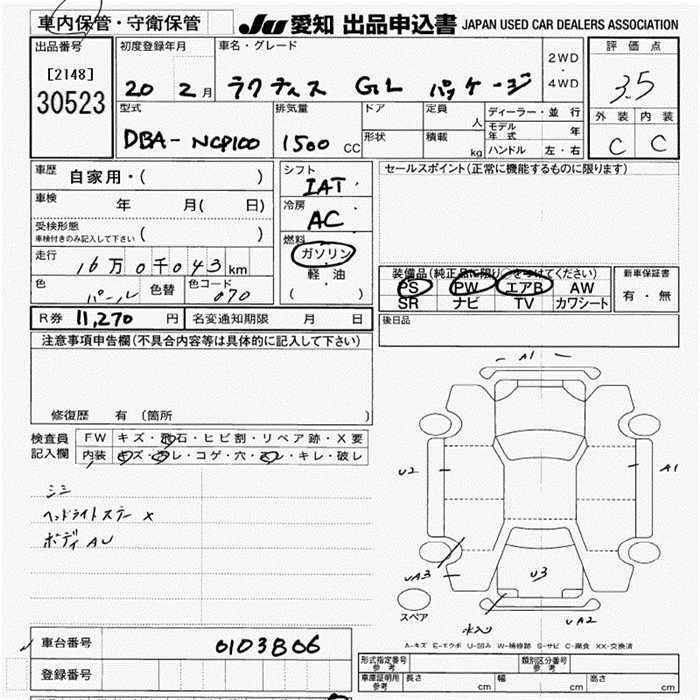 車内保管・守衛保管 JU愛知 出品申込書 JAPAN USED CAR DEALERS ASSOCIATION
出品番号 初度登録年月 車名・グレード 2WD・4WD 評価点
[2148]
30523
20 2月 ラクティス GL パッケージ 3.5
型式 排気量 ドア 定員 人 ディーラー・並行 外装 内装
DBA-NCP100 1500 CC 形状 積載 kg モデル年式 年 C C
ハンドル 左・右
車歴 自家用・( ) シフト セールスポイント(正常に機能するものに限ります)
IAT
車検 年 月( 日) 冷房
AC
受検形態 車検付きのみ記入して下さい ( ) 燃料
走行 16万0千043km ガソリン・軽油 ( )
色 パール 色替 色コード 070
装備品(純正品に限り○をつけてください) 新車保証書
PS PW エアB AW 有・無
SR ナビ TV カワシート
R券 11,270 円 名変通知期限 月 日 後日品
注意事項申告欄(不具合内容等は具体的に記入して下さい)
修復歴 有 (箇所 )
検査員記入欄 FW キズ・飛石・ヒビ割・リペア跡・X要
内装 キズ・ヨレ・コゲ・穴・スレ・キレ・破レ
シミ
ヘッドライトステー X
ボディ AU
A1
U2 A1
UA3 U3
スペア UA2
A-キズ E-エクボ U-凹み W-補修跡 S-サビ C-腐食 XX-交換済
車台番号 0103806
登録番号
形式指定番号 参考 類別区分番号 参考
車庫証明用 参考 長さ cm 幅 cm 高さ cm